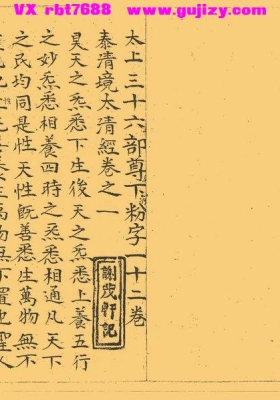 VX rbt7688 www.gujizy.com
太上三十六部尊下粉字一十二卷
泰清境太清經卷之一
昊天之炁悉下生後天之炁悉上養五行
之妙炁悉相養四時之炁悉相通凡天下
之民均同是性天性既善悉生萬物無不
萬物無不置也聖人